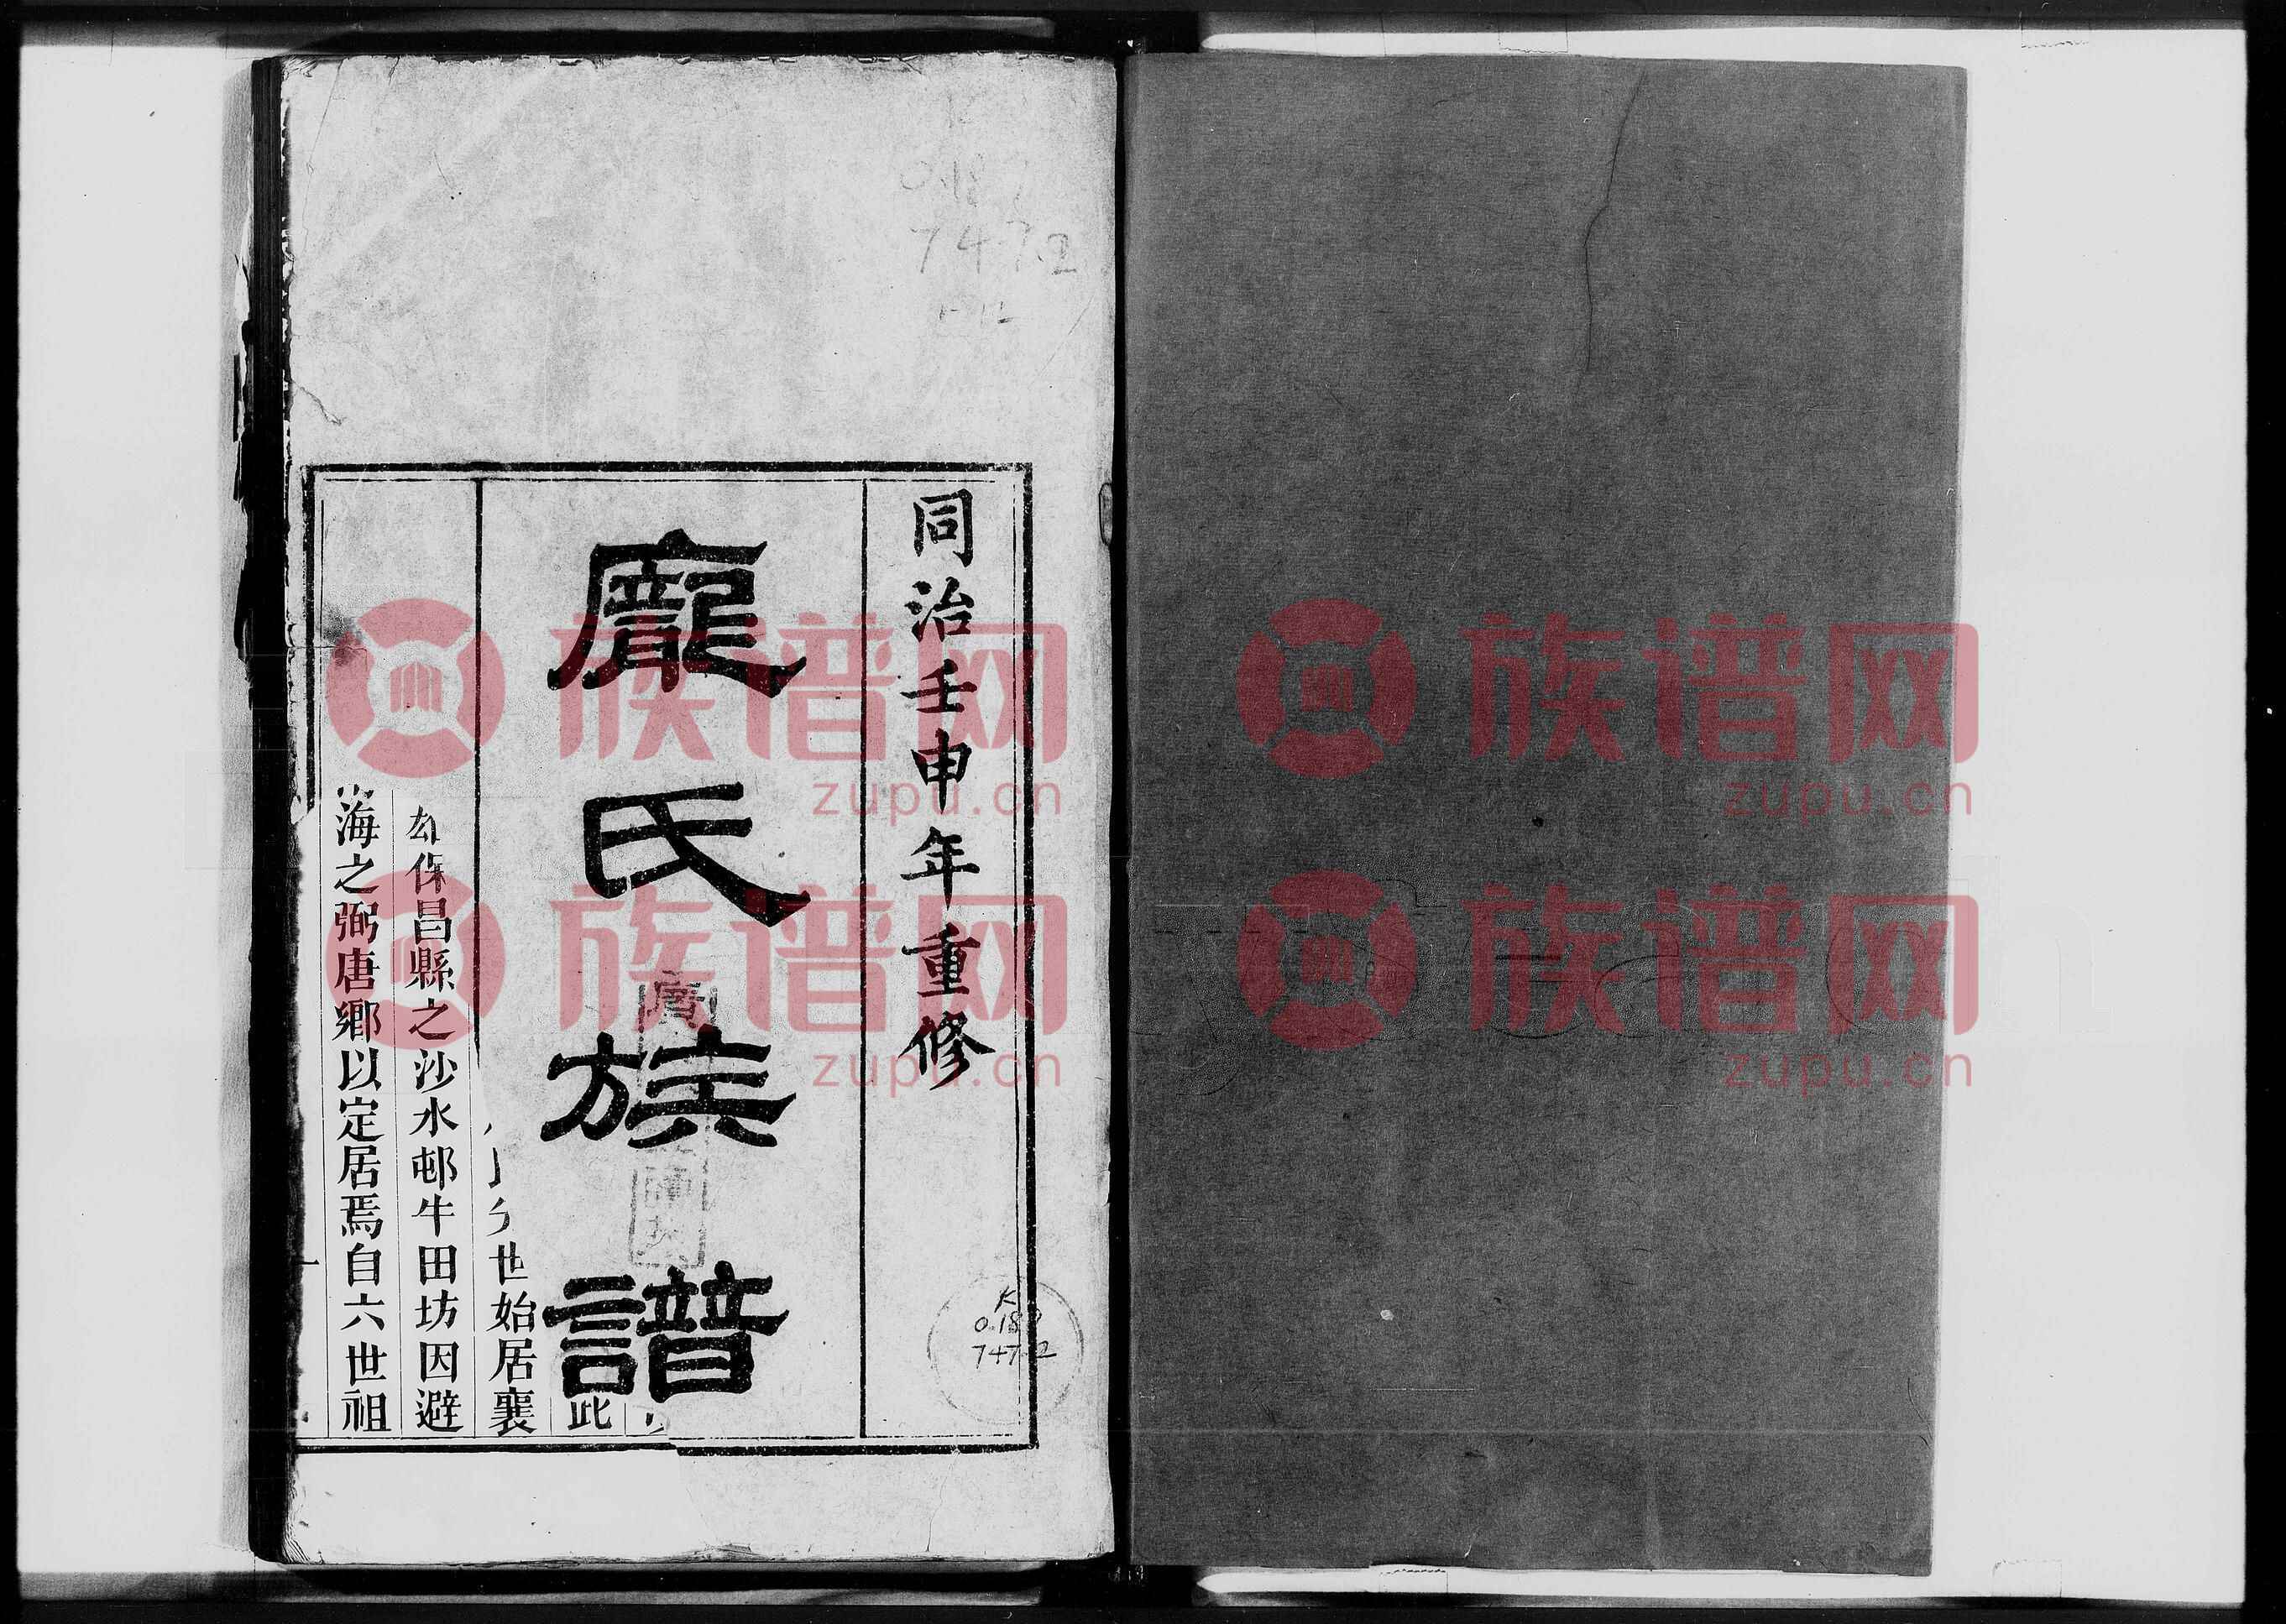 同治壬申年重修
龐氏族譜
此
世始居襄
保昌縣之沙水邨牛田坊因避
海之弼唐鄉以定居焉自六世祖
K
0.189
747.2
0.18
747.2
1-12
族谱网
zupu.cn
族谱网
zupu.cn
族谱网
zupu.cn
族谱网
zupu.cn